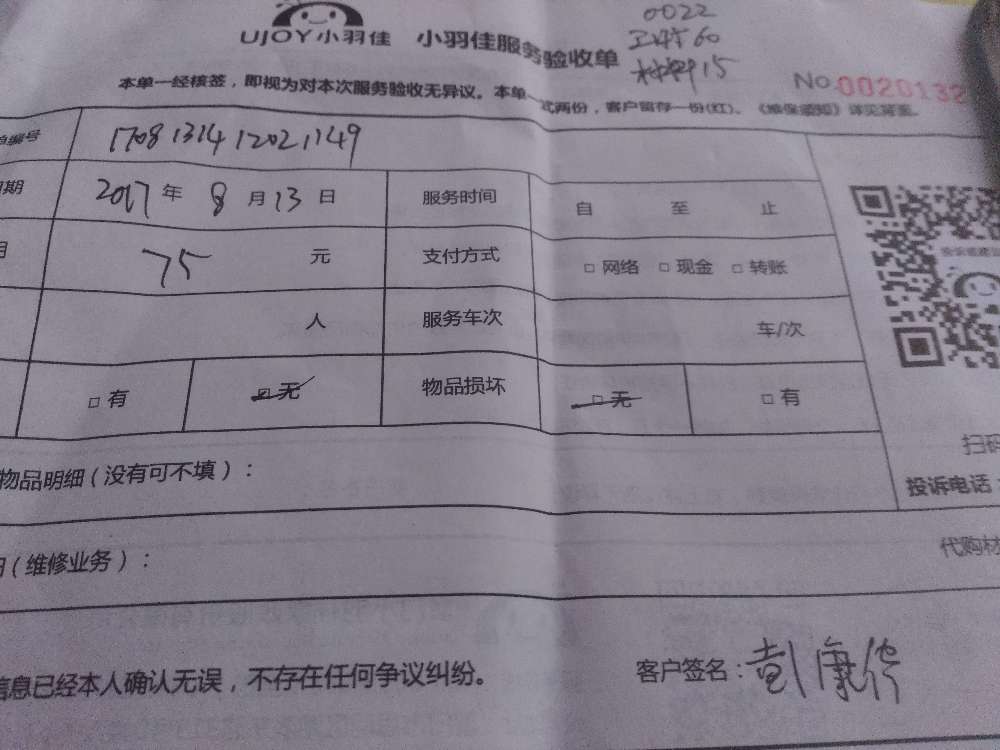 0022
UJOY小羽佳 小羽佳服务验收单
工时60
材料15
No.0020132
本单一经核签，即视为对本次服务验收无异议。本单一式两份，客户留存一份(红)。《维保须知》详见背面。
编号 1708131412021149
日期 2017年8月13日 服务时间 自 至 止
75 元 支付方式 □网络 □现金 □转账
人 服务车次 车/次
□有 ☑无 物品损坏 □无 □有
扫码
物品明细（没有可不填）：
投诉电话：
（维修业务）：
代购材
信息已经本人确认无误，不存在任何争议纠纷。
客户签名：